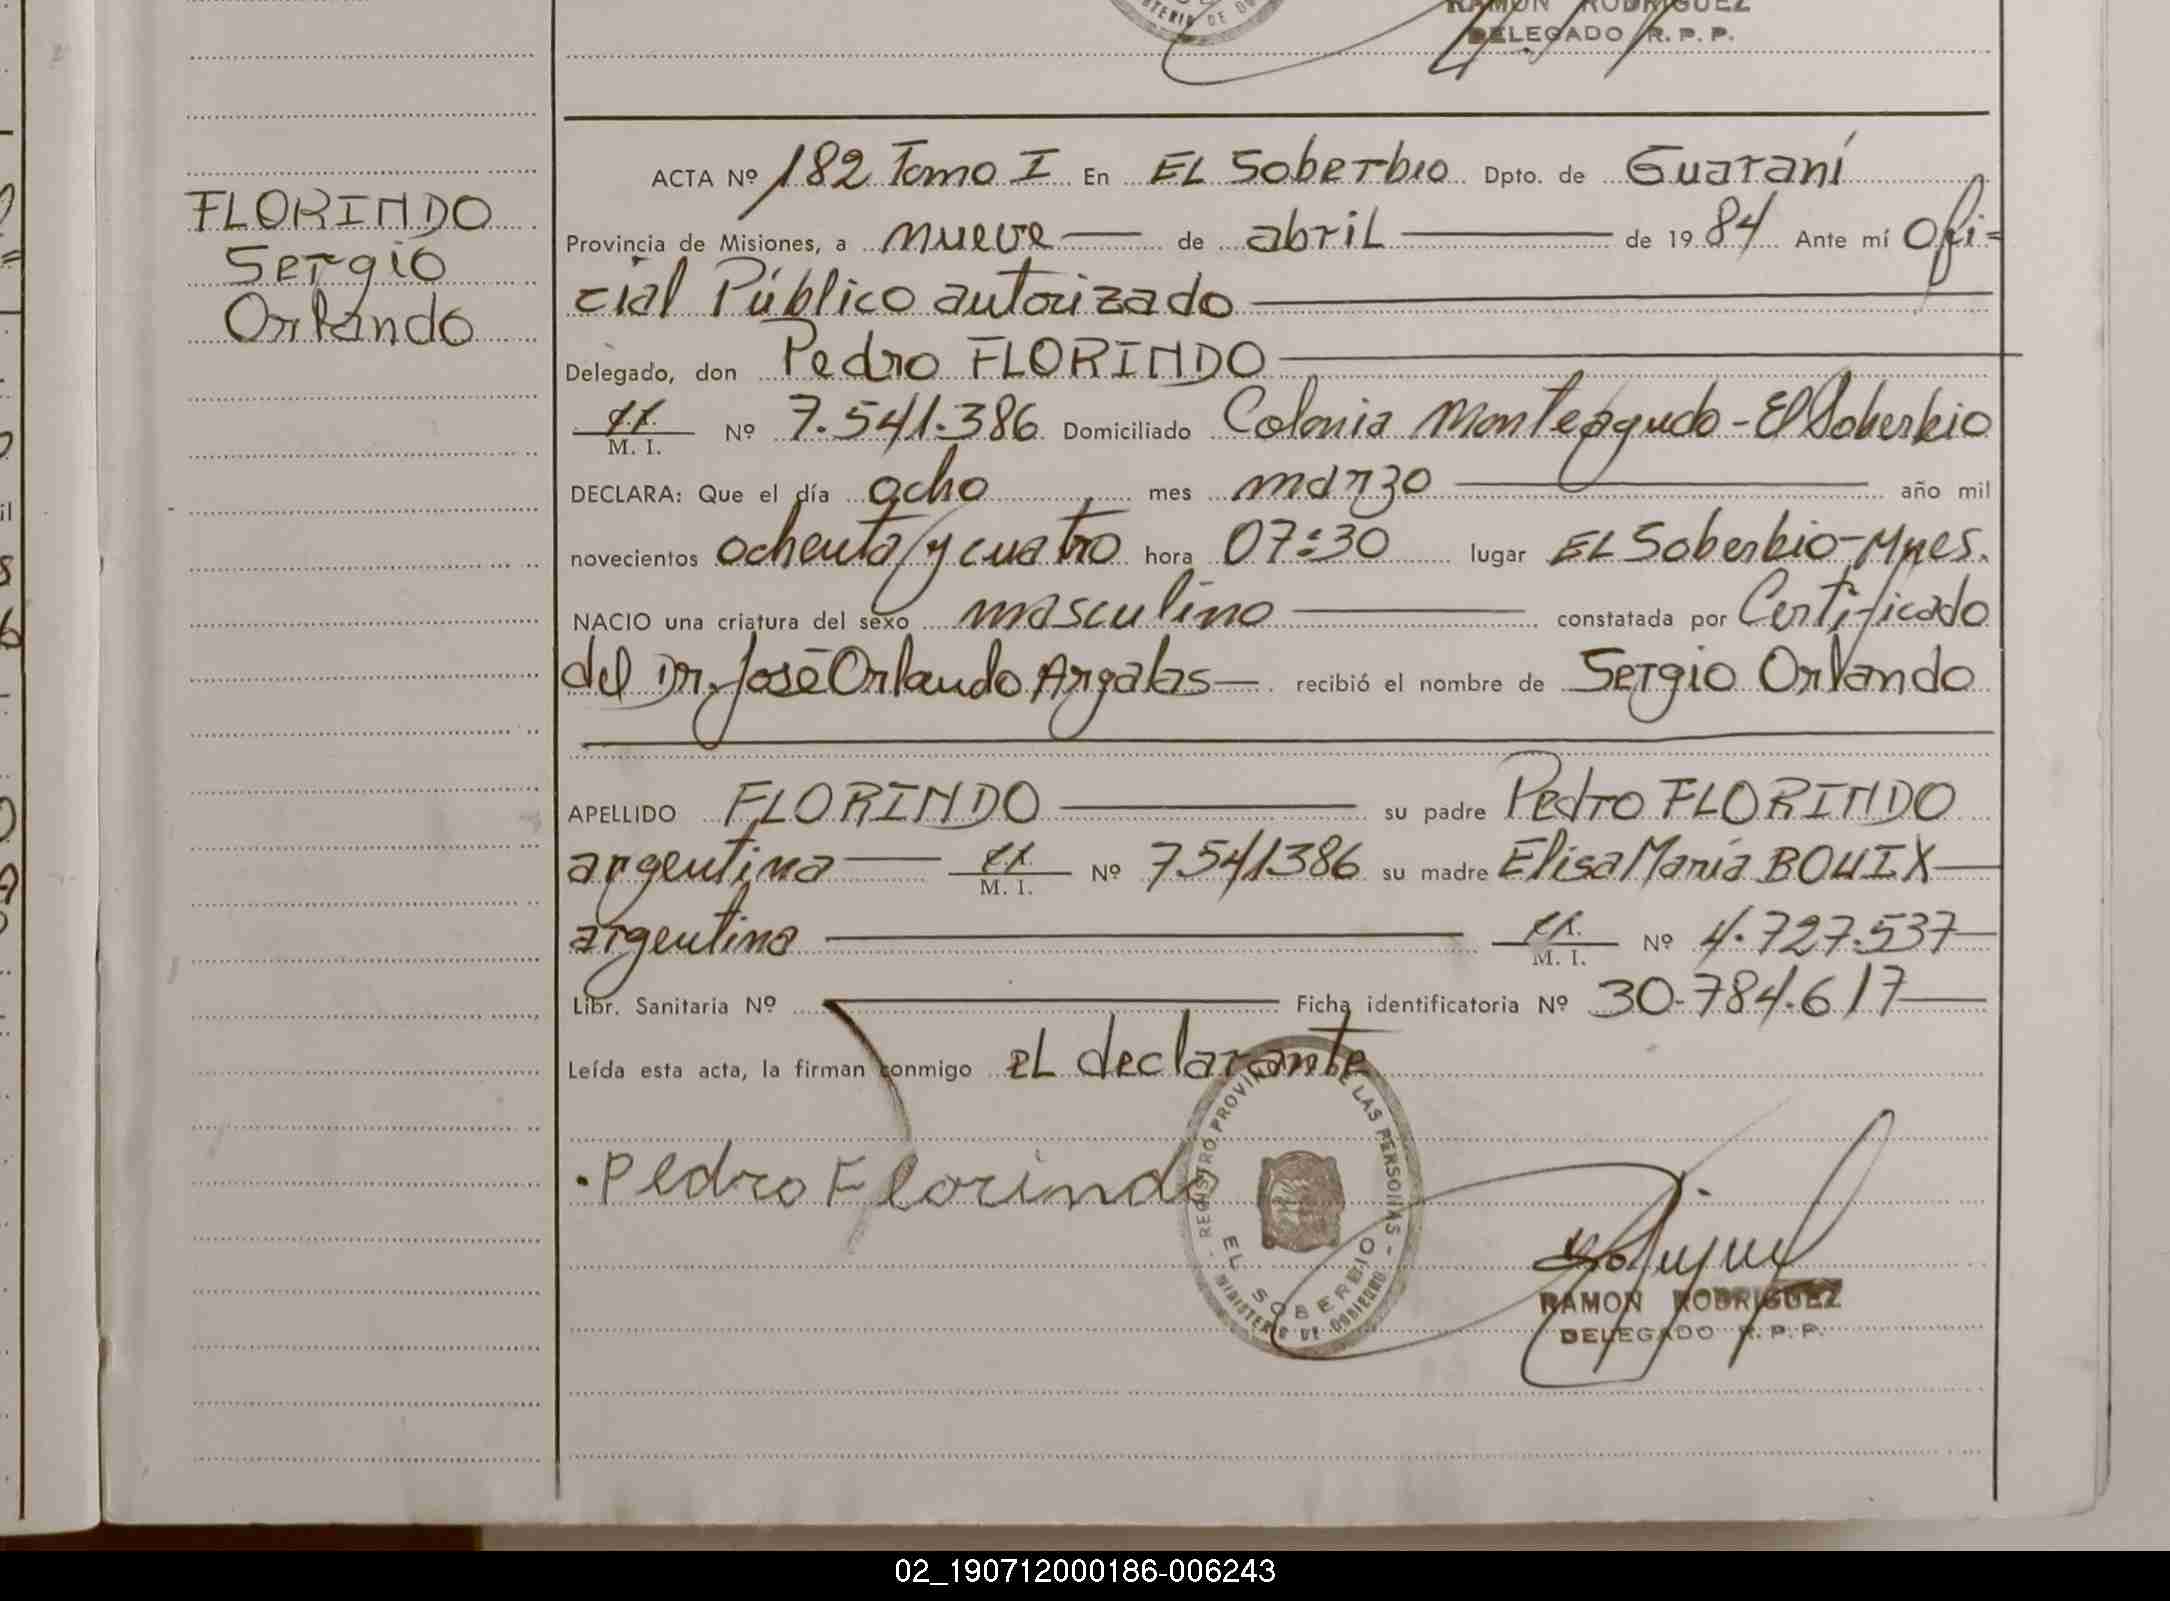 RAMON RODRIGUEZ
DELEGADO R. P. P.
FLORINDO
Sergio
Orlando
ACTA Nº 182 Tomo I En EL Soberbio Dpto. de Guaraní
Provincia de Misiones, a nueve de abril de 1984 Ante mí Ofi=
cial Público autorizado
Delegado, don Pedro FLORINDO
M. I. Nº 7.541.386 Domiciliado Colonia Monteagudo - El Soberbio
DECLARA: Que el día ocho mes marzo año mil
novecientos ochenta y cuatro hora 07:30 lugar EL Soberbio-Mnes.
NACIO una criatura del sexo masculino constatada por Certificado
del Dr. José Orlando recibió el nombre de Sergio Orlando
APELLIDO FLORINDO su padre Pedro FLORINDO
argentina M. I. Nº 7.541.386 su madre Elisa María BOUIX
argentina M. I. Nº 4.727.537
Libr. Sanitaria Nº Ficha identificatoria Nº 30.784.617
Leída esta acta, la firman conmigo EL declarante
Pedro Florindo
REGISTRO PROVINCIAL DE LAS PERSONAS
EL SOBERBIO
MINISTERIO DE GOBIERNO
RAMON RODRIGUEZ
DELEGADO R. P. P.
02_190712000186-006243